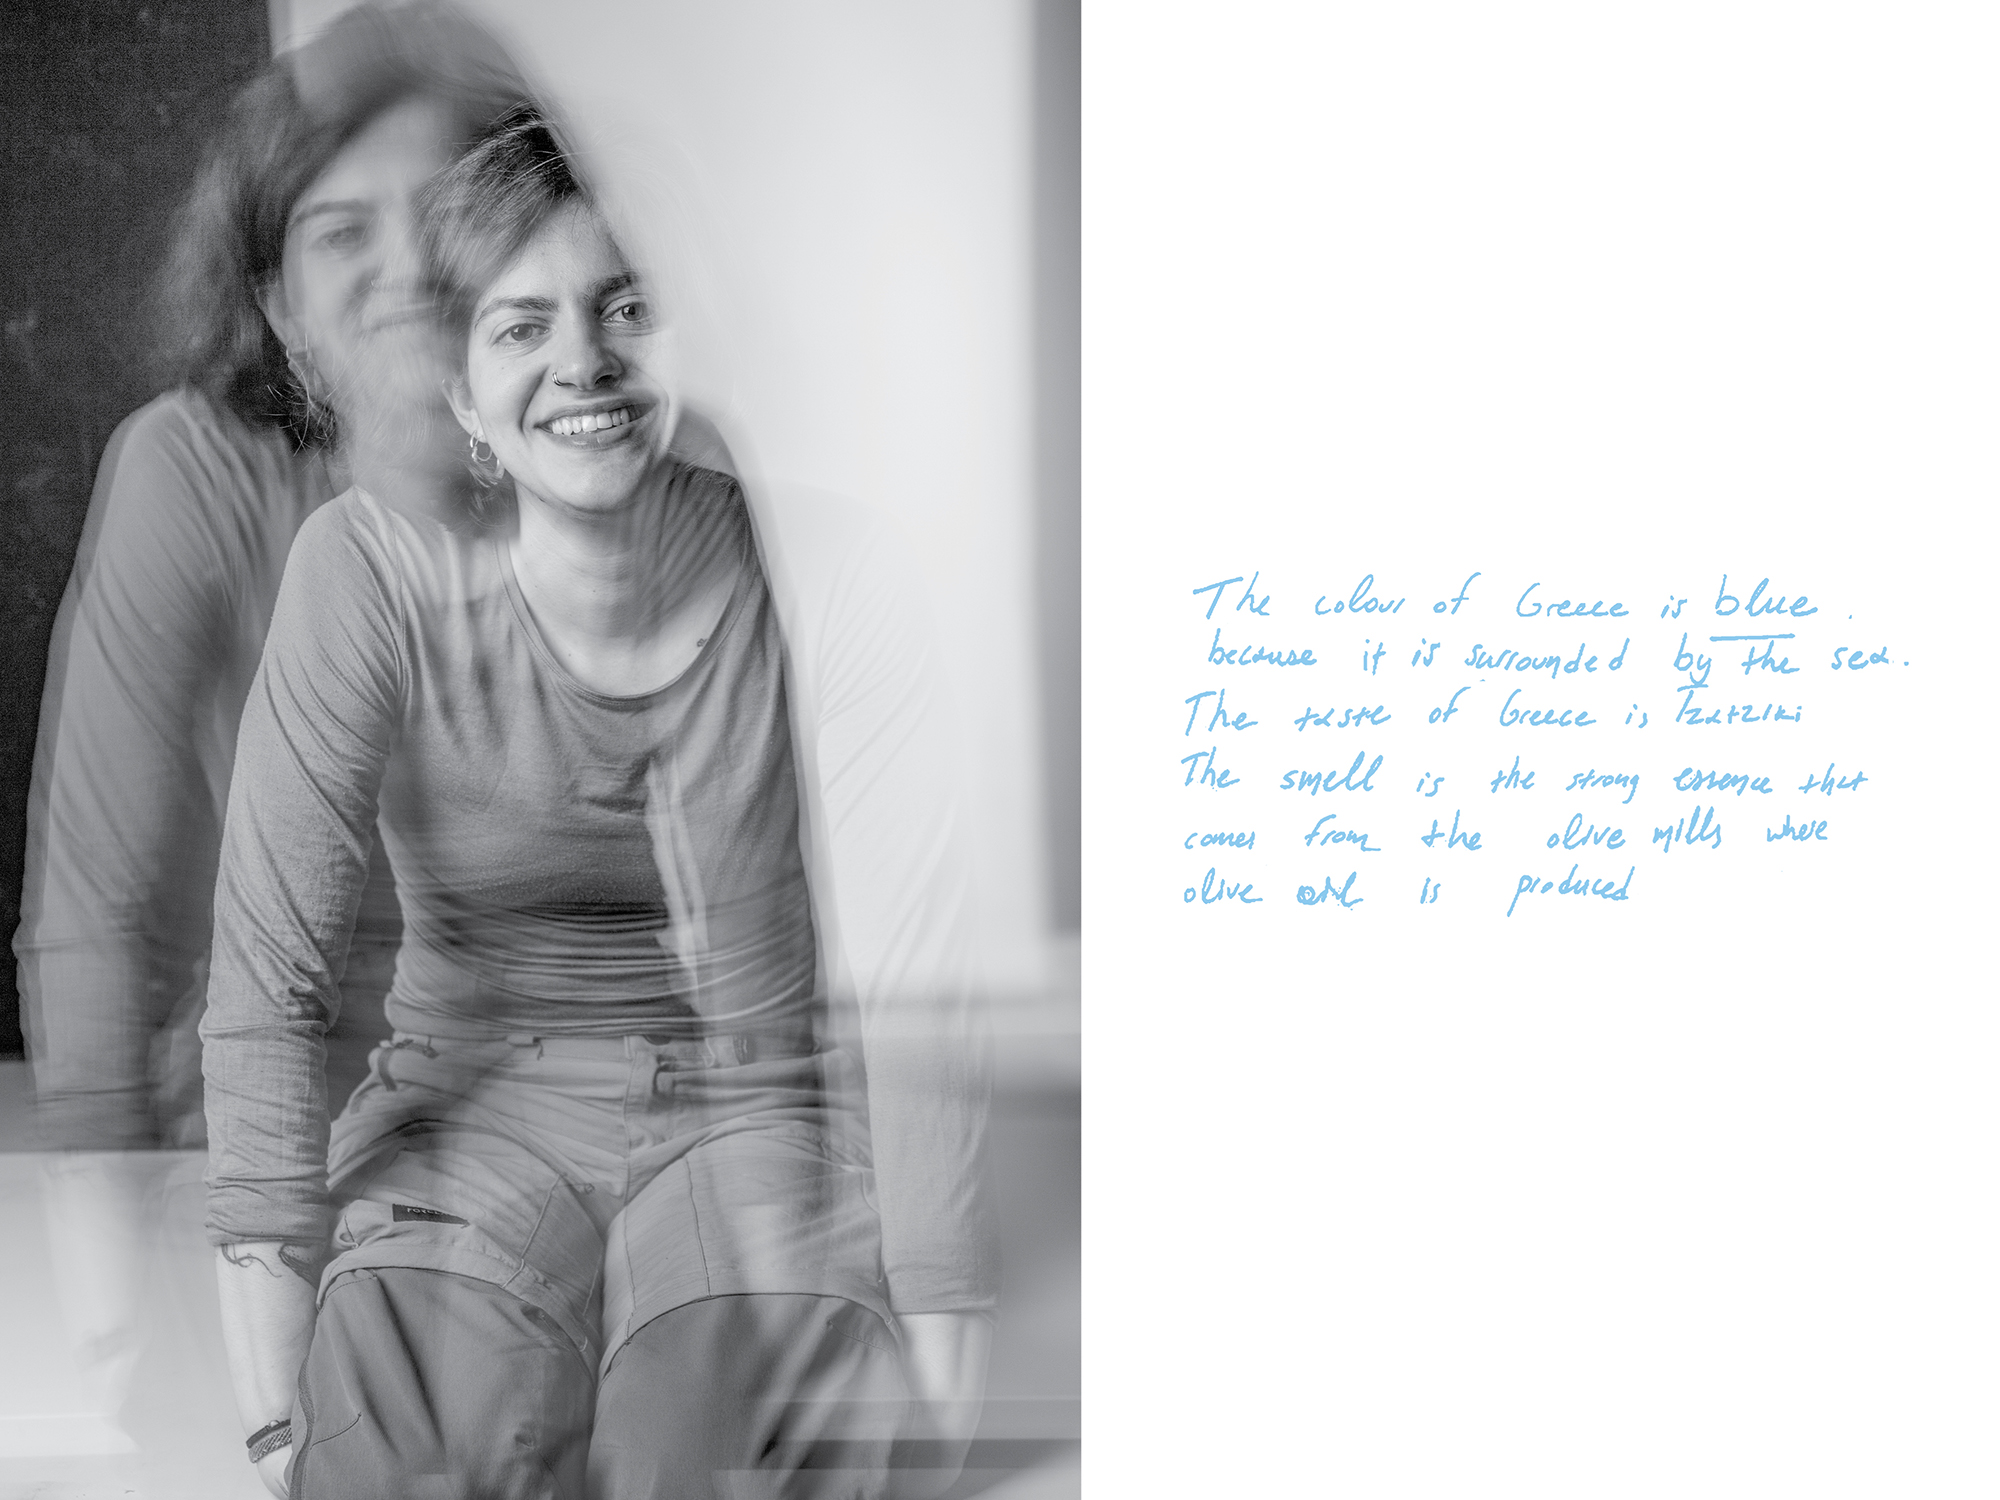 The colour of Greece is blue.
because it is surrounded by the sea.
The taste of Greece is Tzatziki
The smell is the strong essence that
comes from the olive mills where
olive oil is produced